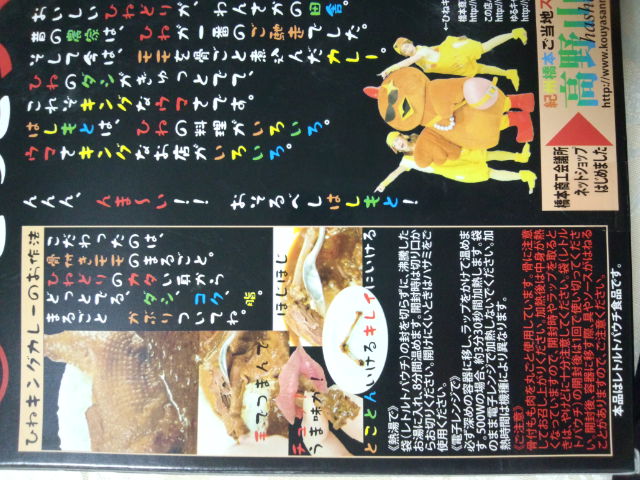 おいしいひねとりが、わんさかの田舎。
昔の農家は、ひねが一番のご馳走でした。
そして今は、モモを骨ごと煮込んだカレー。
ひねのダシがぎゅっとでて、
これぞキングなウマさです。
はしもとは、ひねの料理がいろいろ。
ウマさでキングなお店がいろいろ。
んんん、んま〜い!! おそるべしはしもと!
紀州橋本ご当地ス
高野山
hash
http://www.kouyasann
橋本商工会議所
ネットショップ
はじめました
ひねキングカレーのお作法
こだわったのは、
骨付きモモのまるごと。
ひねとりのカタい肉から
どっとでる、ダシ、コク、脂。
まるごとがポリついてね。
手でつまんで
チューッ
うま味が!
ほじほじ
とことんいけるキレイにいける
《熱湯で》
袋(レトルトパウチ)の封を切らずに、沸騰した
お湯に入れ、8分間温めます。開封時は切り口か
らお切りください。開けにくいときはハサミをご
使用ください。
《電子レンジで》
必ず深めの容器に移し、ラップをかけて温めま
す。500Wの場合、約3分30秒間加熱します。袋
のまま電子レンジで加熱しないでください。加
熱時間は機種により異なります。
《ご注意》
骨付きもも肉を丸ごと使用しています。骨に注意
してお召し上がりください。加熱後は中身が熱
くなっていますので、開封時やラップを取ると
きは、やけどに十分注意してください。袋(レトル
トパウチ)の開封後は1回で使い切ってくださ
い。開封後、容器に移す際に、具やソースがはねる
ことがありますので、ご注意ください。
本品はレトルトパウチ食品です。